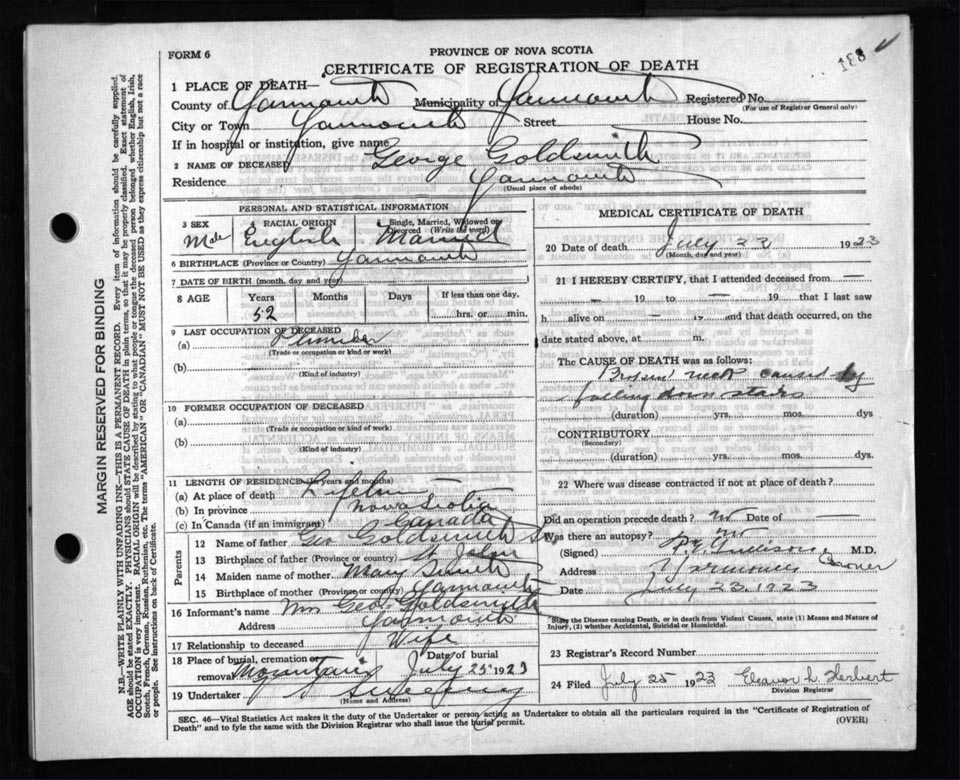 FORM 6
PROVINCE OF NOVA SCOTIA
CERTIFICATE OF REGISTRATION OF DEATH
831
1 PLACE OF DEATH—
County of Yarmouth Municipality of Yarmouth Registered No.
(For use of Registrar General only)
City or Town Yarmouth Street House No.
If in hospital or institution, give name
2 NAME OF DECEASED George Goldsmith
Residence Yarmouth
(Usual place of abode)
PERSONAL AND STATISTICAL INFORMATION
3 SEX 4 RACIAL ORIGIN 5 Single, Married, Widowed or Divorced (Write the word)
Male English Married
6 BIRTHPLACE (Province or Country) Yarmouth
7 DATE OF BIRTH (month, day and year)
8 AGE Years Months Days If less than one day.
52 hrs. or min.
9 LAST OCCUPATION OF DECEASED
(a) Plumber
(Trade or occupation or kind or work)
(b)
(Kind of industry)
10 FORMER OCCUPATION OF DECEASED
(a)
(Trade or occupation or kind or work)
(b)
(Kind of industry)
11 LENGTH OF RESIDENCE (in years and months)
(a) At place of death Lifetime
(b) In province Nova Scotia
(c) In Canada (if an immigrant) Canada
Parents
12 Name of father Geo Goldsmith Sr.
13 Birthplace of father (Province or country) St John
14 Maiden name of mother Mary
15 Birthplace of mother (Province or country) Yarmouth
16 Informant's name Mrs Geo Goldsmith
Address Yarmouth
17 Relationship to deceased Wife
18 Place of burial, cremation or removal Mountain Date of burial July 25 1923
19 Undertaker Sweeny
(Name and Address)
MEDICAL CERTIFICATE OF DEATH
20 Date of death July 22 1923
(Month, day and year)
21 I HEREBY CERTIFY, that I attended deceased from —
— 19 to — 19 that I last saw
h alive on — 19 and that death occurred, on the
date stated above, at m.
The CAUSE OF DEATH was as follows:
Broken neck caused by
falling down stairs
(duration) yrs. mos. dys
CONTRIBUTORY
(Secondary)
(duration) yrs. mos. dys.
22 Where was disease contracted if not at place of death?
Did an operation precede death? no Date of
Was there an autopsy? no
(Signed) M.D.
Coroner
Address Yarmouth
Date July 23. 1923
*State the Disease Causing Death, or in death from Violent Causes, state (1) Means and Nature of
Injury, (2) whether Accidental, Suicidal or Homicidal.
23 Registrar's Record Number
24 Filed July 25 1923 Eleanor L. Herbert
Division Registrar
SEC. 46—Vital Statistics Act makes it the duty of the Undertaker or person acting as Undertaker to obtain all the particulars required in the "Certificate of Registration of
Death" and to fyle the same with the Division Registrar who shall issue the burial permit.
(OVER)
MARGIN RESERVED FOR BINDING
N.B.—WRITE PLAINLY WITH UNFADING INK—THIS IS A PERMANENT RECORD. Every item of information should be carefully supplied.
AGE should be stated EXACTLY. PHYSICIANS should STATE CAUSE OF DEATH in plain terms, so that it may be properly classified. Exact statement of
OCCUPATION is very important. RACIAL ORIGIN will be described by stating to what people or tongue the deceased person belonged, whether English, Irish,
Scotch, French, German, Russian, Ruthenian, etc. The terms "AMERICAN" OR "CANADIAN" MUST NOT BE USED as they express citizenship but not a race
or people. See instructions on back of Certificate.